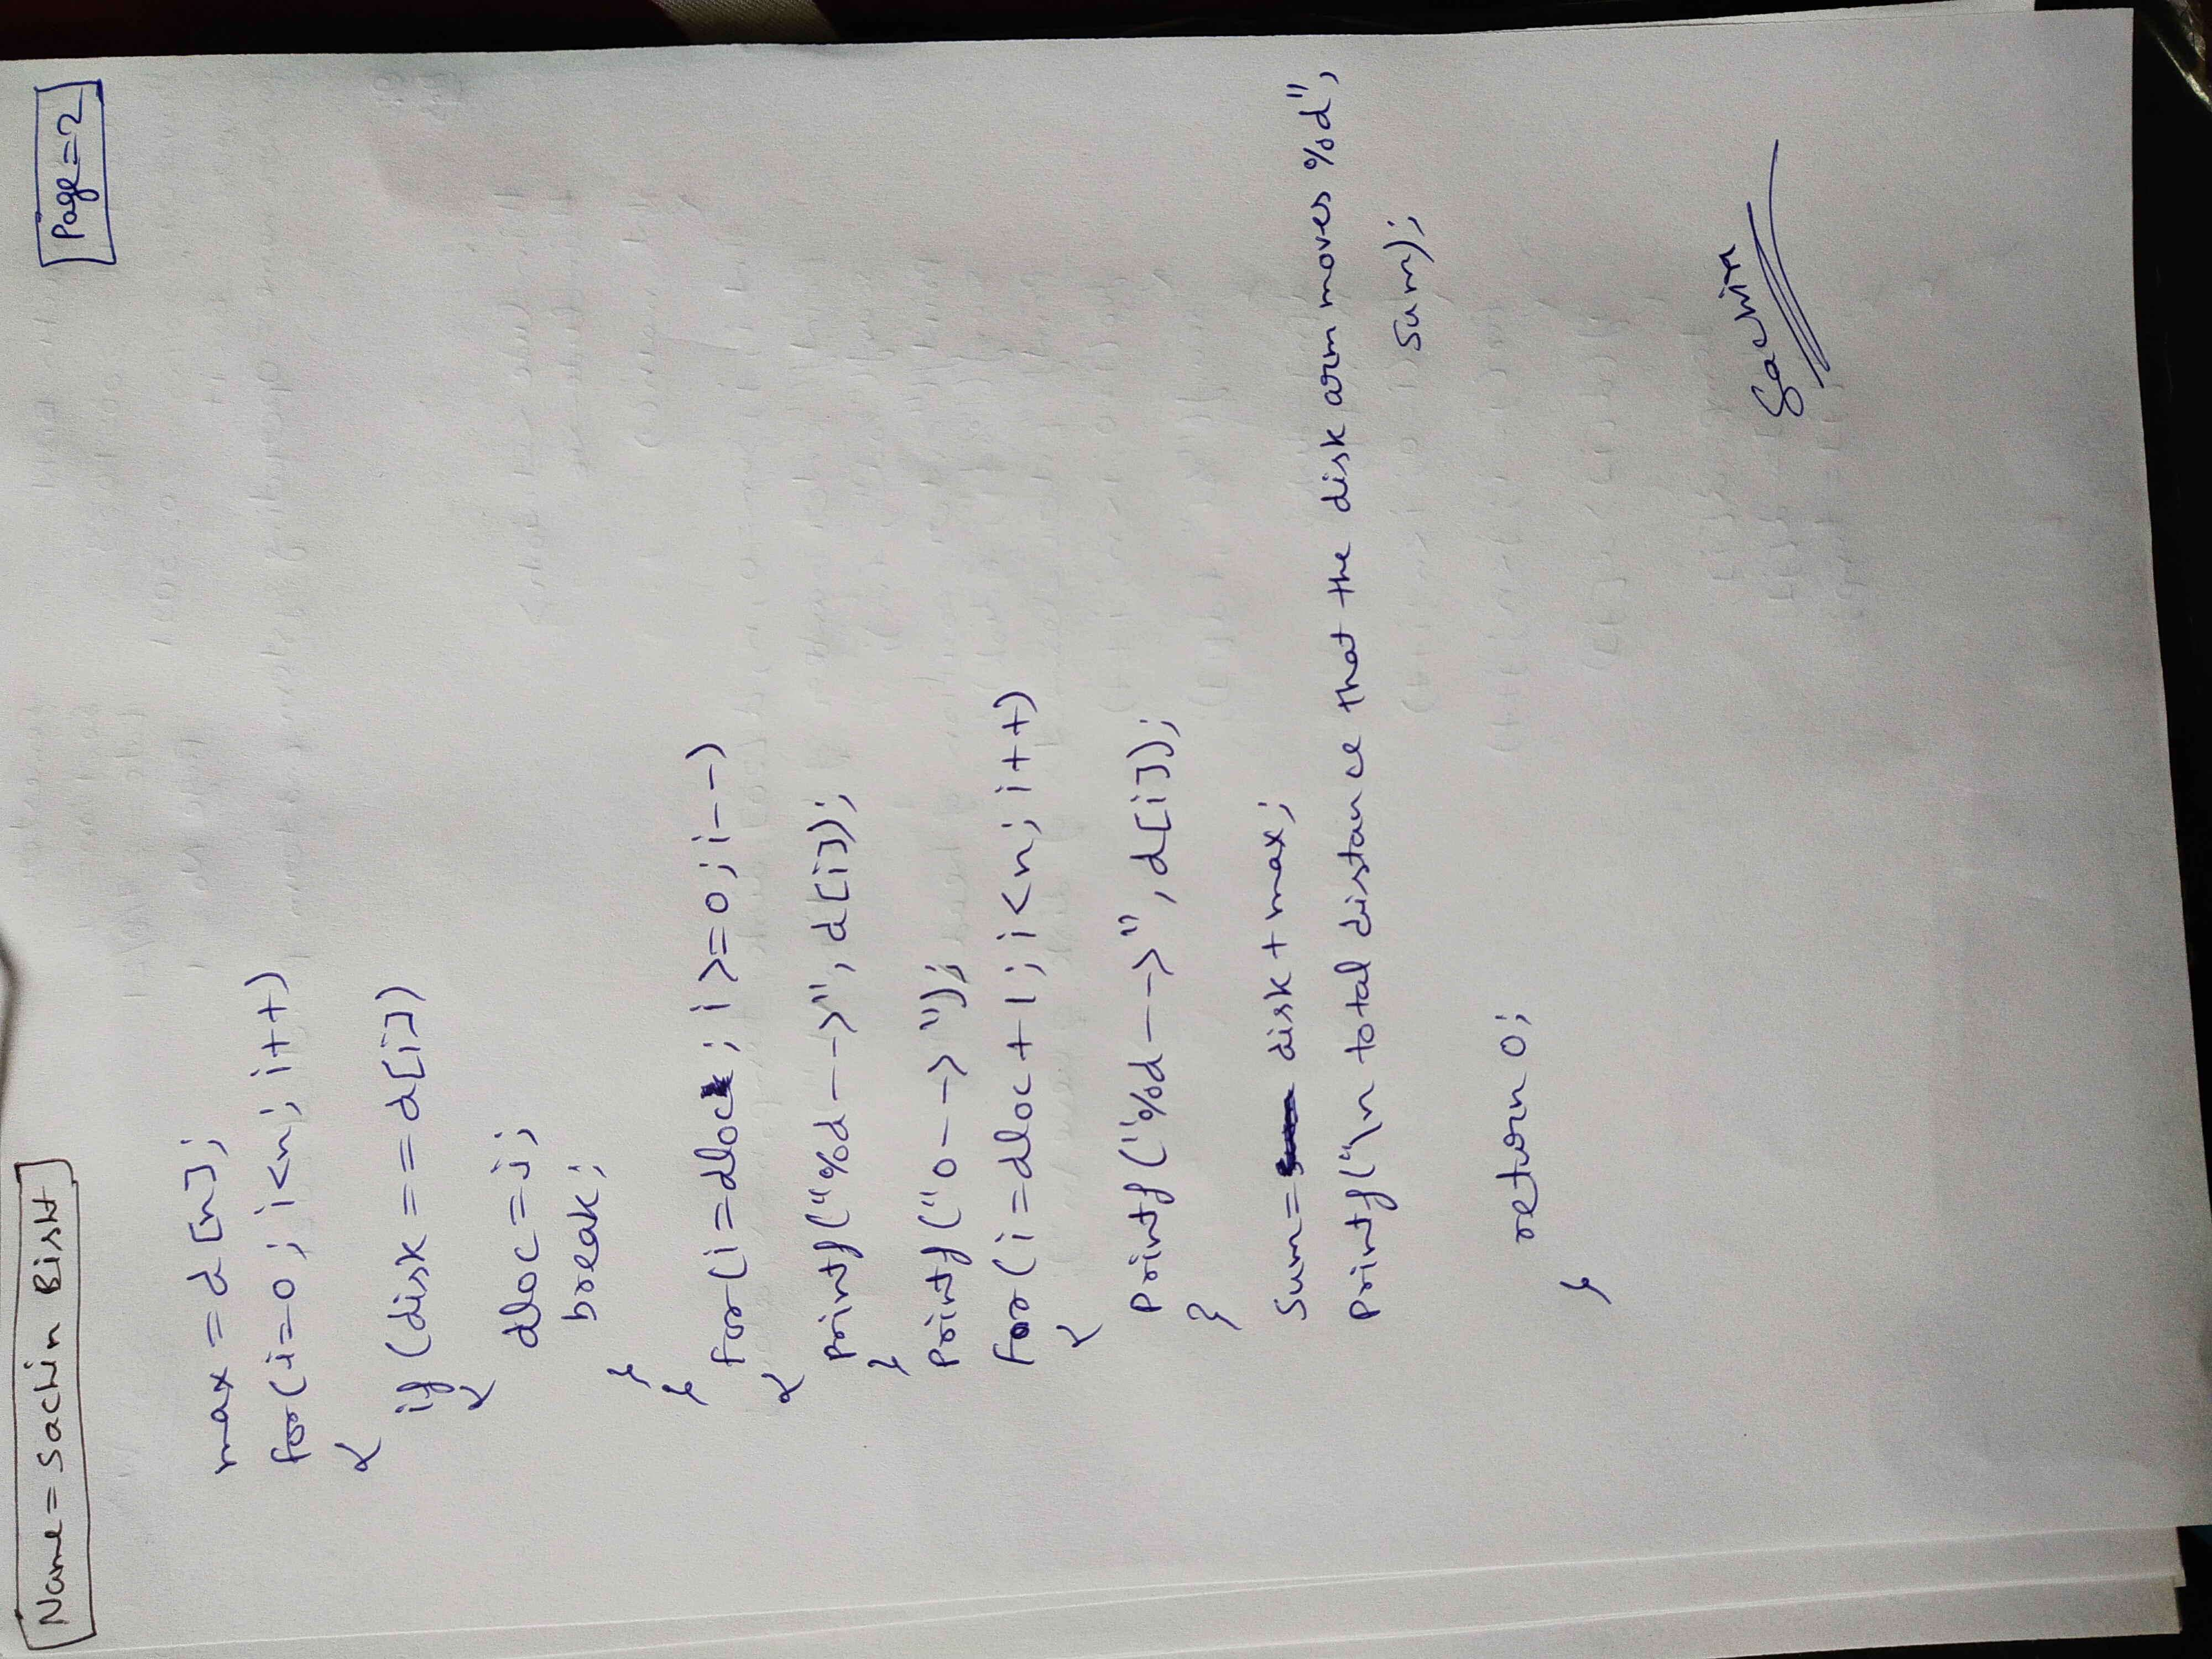 Name = Sachin Bisht
Page = 2
max = d[n];
for(i=0; i<n; i++)
{
if (disk == d[i])
{
dloc=i;
break;
}
}
for(i=dloc; i>=0; i--)
{
printf("%d-->", d[i]);
}
printf("0--> ");
for(i=dloc+1; i<n; i++)
{
printf("%d-->", d[i]);
}
Sum= disk+max;
printf("\n total distance that the disk arm moves %d",
sum);
return 0;
}
Sachin